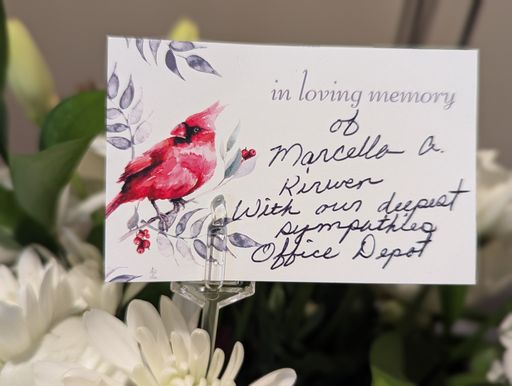 in loving memory
of
Marcella A.
Kirwen
With our deepest
sympathies
Office Depot